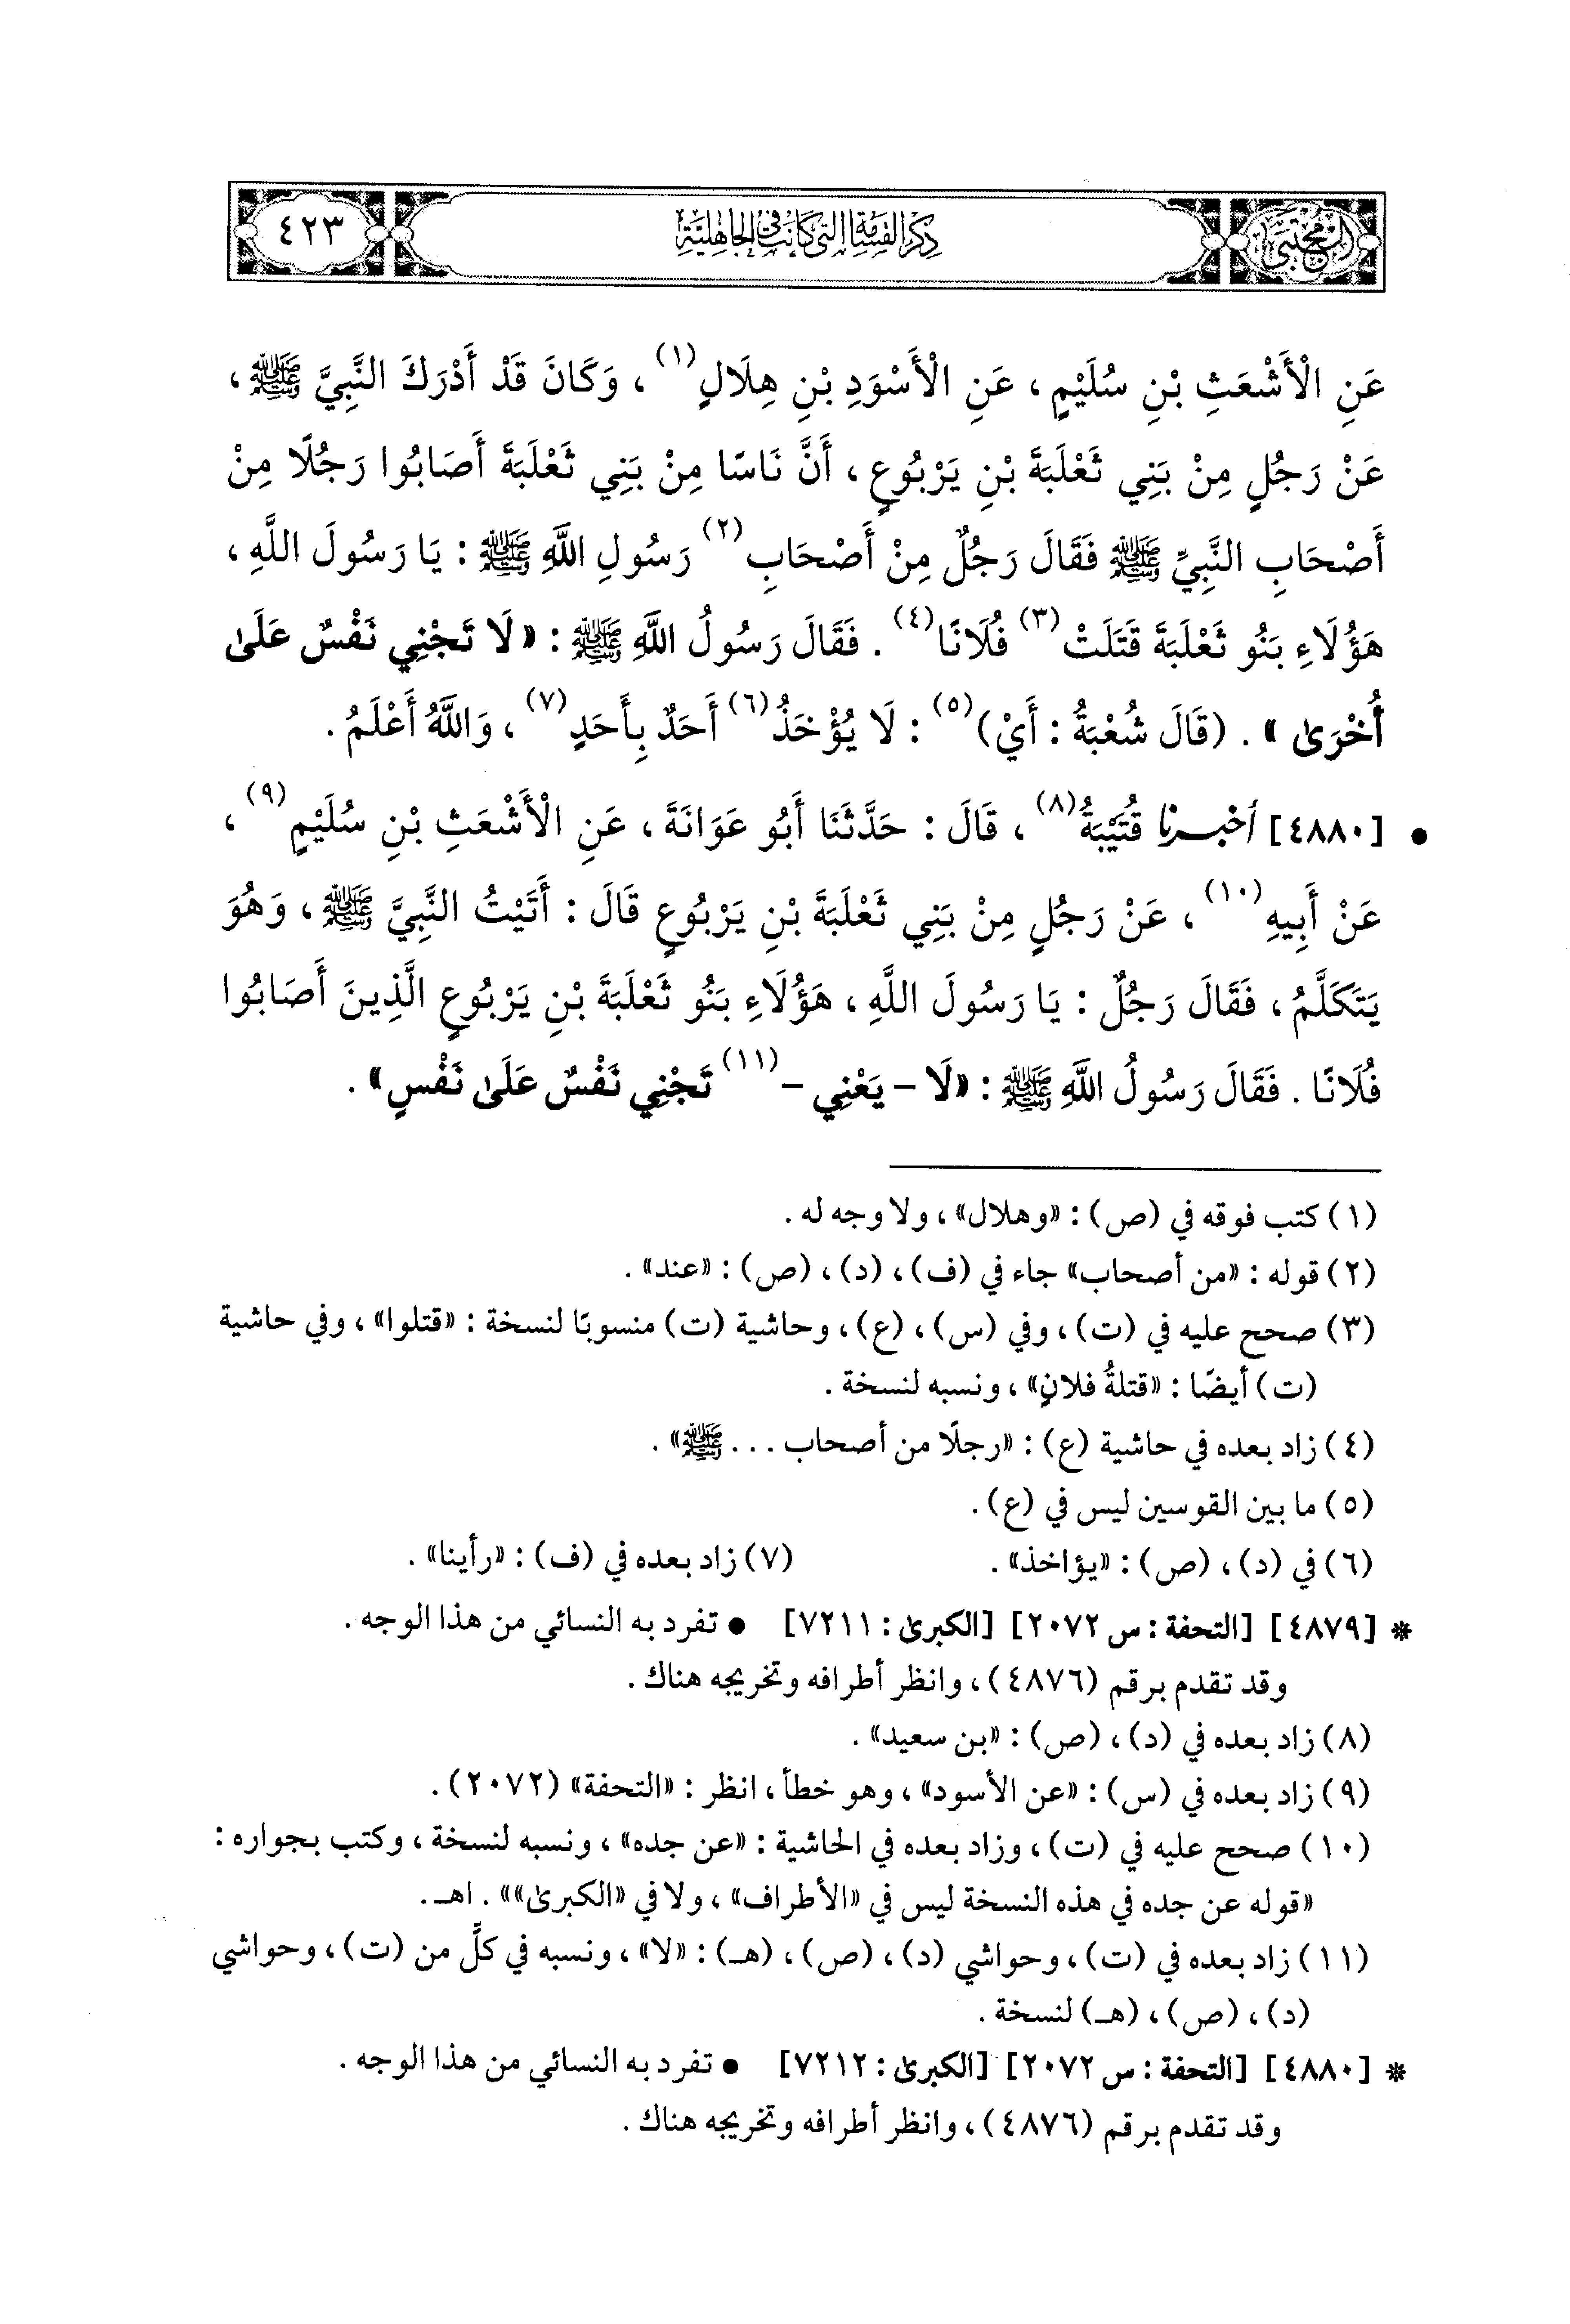 المجتبى
ذكر القسامة التي كانت في الجاهلية
٤٢٣
عَنِ الْأَشْعَثِ بْنِ سُلَيْمٍ ، عَنِ الْأَسْوَدِ بْنِ هِلَالٍ(١) ، وَكَانَ قَدْ أَدْرَكَ النَّبِيَّ ﷺ ،
عَنْ رَجُلٍ مِنْ بَنِي ثَعْلَبَةَ بْنِ يَرْبُوعٍ ، أَنَّ نَاسًا مِنْ بَنِي ثَعْلَبَةَ أَصَابُوا رَجُلًا مِنْ
أَصْحَابِ النَّبِيِّ ﷺ فَقَالَ رَجُلٌ مِنْ أَصْحَابِ(٢) رَسُولِ اللَّهِ ﷺ : يَا رَسُولَ اللَّهِ ،
هَؤُلَاءِ بَنُو ثَعْلَبَةَ قَتَلَتْ(٣) فُلَانًا(٤) . فَقَالَ رَسُولُ اللَّهِ ﷺ : «لَا تَجْنِي نَفْسٌ عَلَىٰ
أُخْرَىٰ» . (قَالَ شُعْبَةُ : أَيْ)(٥) : لَا يُؤْخَذُ(٦) أَحَدٌ بِأَحَدٍ(٧) ، وَاللَّهُ أَعْلَمُ .
• [٤٨٨٠] أخبرنا قُتَيْبَةُ(٨) ، قَالَ : حَدَّثَنَا أَبُو عَوَانَةَ ، عَنِ الْأَشْعَثِ بْنِ سُلَيْمٍ(٩) ،
عَنْ أَبِيهِ(١٠) ، عَنْ رَجُلٍ مِنْ بَنِي ثَعْلَبَةَ بْنِ يَرْبُوعٍ قَالَ : أَتَيْتُ النَّبِيَّ ﷺ ، وَهُوَ
يَتَكَلَّمُ ، فَقَالَ رَجُلٌ : يَا رَسُولَ اللَّهِ ، هَؤُلَاءِ بَنُو ثَعْلَبَةَ بْنِ يَرْبُوعٍ الَّذِينَ أَصَابُوا
فُلَانًا . فَقَالَ رَسُولُ اللَّهِ ﷺ : «لَا - يَعْنِي -(١١) تَجْنِي نَفْسٌ عَلَىٰ نَفْسٍ» .
(١) كتب فوقه في (ص) : «وهلال» ، ولا وجه له .
(٢) قوله : «من أصحاب» جاء في (ف) ، (د) ، (ص) : «عند» .
(٣) صحح عليه في (ت) ، وفي (س) ، (ع) ، وحاشية (ت) منسوبًا لنسخة : «قتلوا» ، وفي حاشية
(ت) أيضًا : «قتلةُ فلانٍ» ، ونسبه لنسخة .
(٤) زاد بعده في حاشية (ع) : «رجلًا من أصحاب . . . ﷺ» .
(٥) ما بين القوسين ليس في (ع) .
(٦) في (د) ، (ص) : «يؤاخذ» . (٧) زاد بعده في (ف) : «رأينا» .
* [٤٨٧٩] [التحفة : س ٢٠٧٢] [الكبرىٰ : ٧٢١١] • تفرد به النسائي من هذا الوجه .
وقد تقدم برقم (٤٨٧٦) ، وانظر أطرافه وتخريجه هناك .
(٨) زاد بعده في (د) ، (ص) : «بن سعيد» .
(٩) زاد بعده في (س) : «عن الأسود» ، وهو خطأ ، انظر : «التحفة» (٢٠٧٢) .
(١٠) صحح عليه في (ت) ، وزاد بعده في الحاشية : «عن جده» ، ونسبه لنسخة ، وكتب بجواره :
«قوله عن جده في هذه النسخة ليس في «الأطراف» ، ولا في «الكبرىٰ»» . اهـ .
(١١) زاد بعده في (ت) ، وحواشي (د) ، (ص) ، (هـ) : «لا» ، ونسبه في كلٍّ من (ت) ، وحواشي
(د) ، (ص) ، (هـ) لنسخة .
* [٤٨٨٠] [التحفة : س ٢٠٧٢] [الكبرىٰ : ٧٢١٢] • تفرد به النسائي من هذا الوجه .
وقد تقدم برقم (٤٨٧٦) ، وانظر أطرافه وتخريجه هناك .